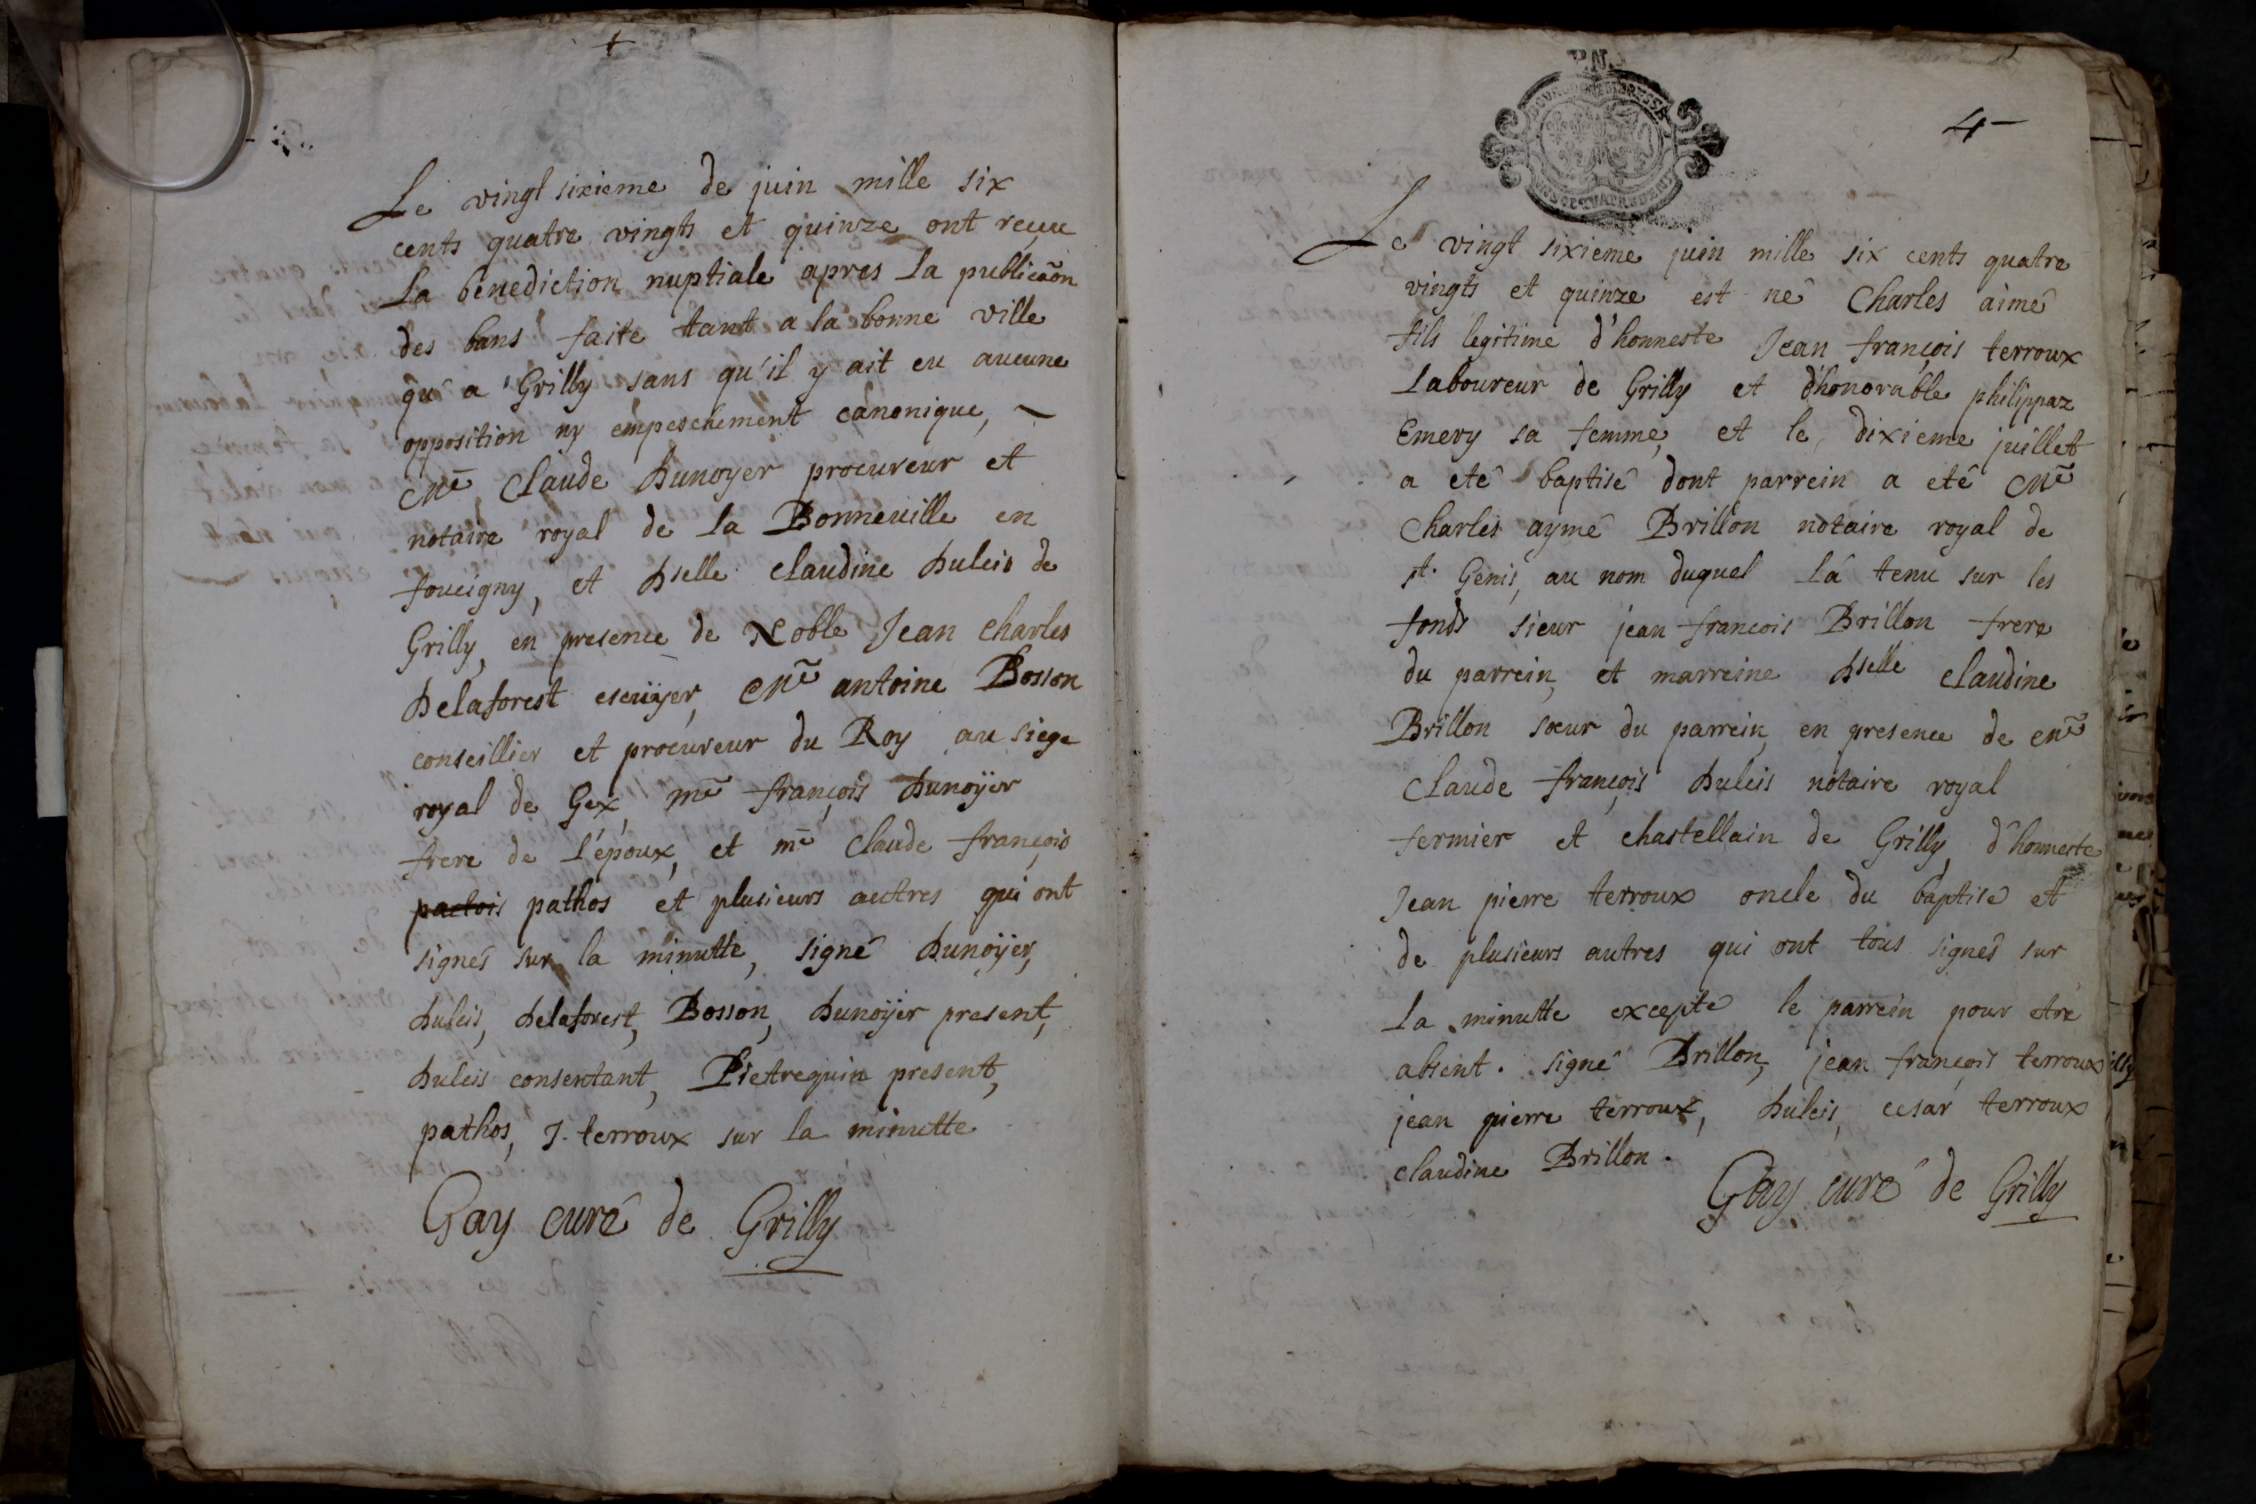 Le vingt sixieme de juin mille six
cents quatre vingts et quinze ont reçeu
la bénediction nuptiale apres la publicaõn
des bans faite tant a la bonne ville
qu'a Grilly sans qu'il y ait eu aucune
opposition ny empeschement canonique,
Me Claude Dunoyer procureur et
notaire royal de la Bonneville en
foucigny, et Dselle claudine Duleis de
Grilly, en presence de Noble Jean charles
Delaforest escuÿer, Me antoine Bosson
conseillier et procureur du Roy au siege
royal de Gex, me françois Dunoÿer
frere de l'époux, et me Claude françois
pathos et plusieurs autres qui ont
signés sur la minutte, signé Dunoÿer,
Duleis, Delaforest, Bosson, Dunoÿer present,
Duleis consentant, Pietrequin present,
pathos, J. terroux sur la minutte
Gay curé de Grilly
4
Le vingt sixieme juin mille six cents quatre
vingts et quinze est né Charles aimé
fils legitime d'honneste Jean françois terroux
Laboureur de Grilly et d'honorable philippaz
Emery sa femme, et le dixieme juillet
a eté baptisé dont parrein a eté Me
Charles aymé Brillon notaire royal de
st. Genis, au nom duquel la tenu sur les
fonds sieur jean francois Brillon frere
du parrein, et marreine Dselle claudine
Brillon sœur du parrein, en presence de me
Claude françois Duleis notaire royal
fermier et chastellain de Grilly d'honneste
Jean pierre terroux oncle du baptisé et
de plusieurs autres qui ont tous signés sur
la minutte excepté le parrein pour etre
absent. signé Brillon, jean françois terroux
jean pierre terroux, Duleis, cesar terroux
claudine Brillon.
Gay curé de Grilly